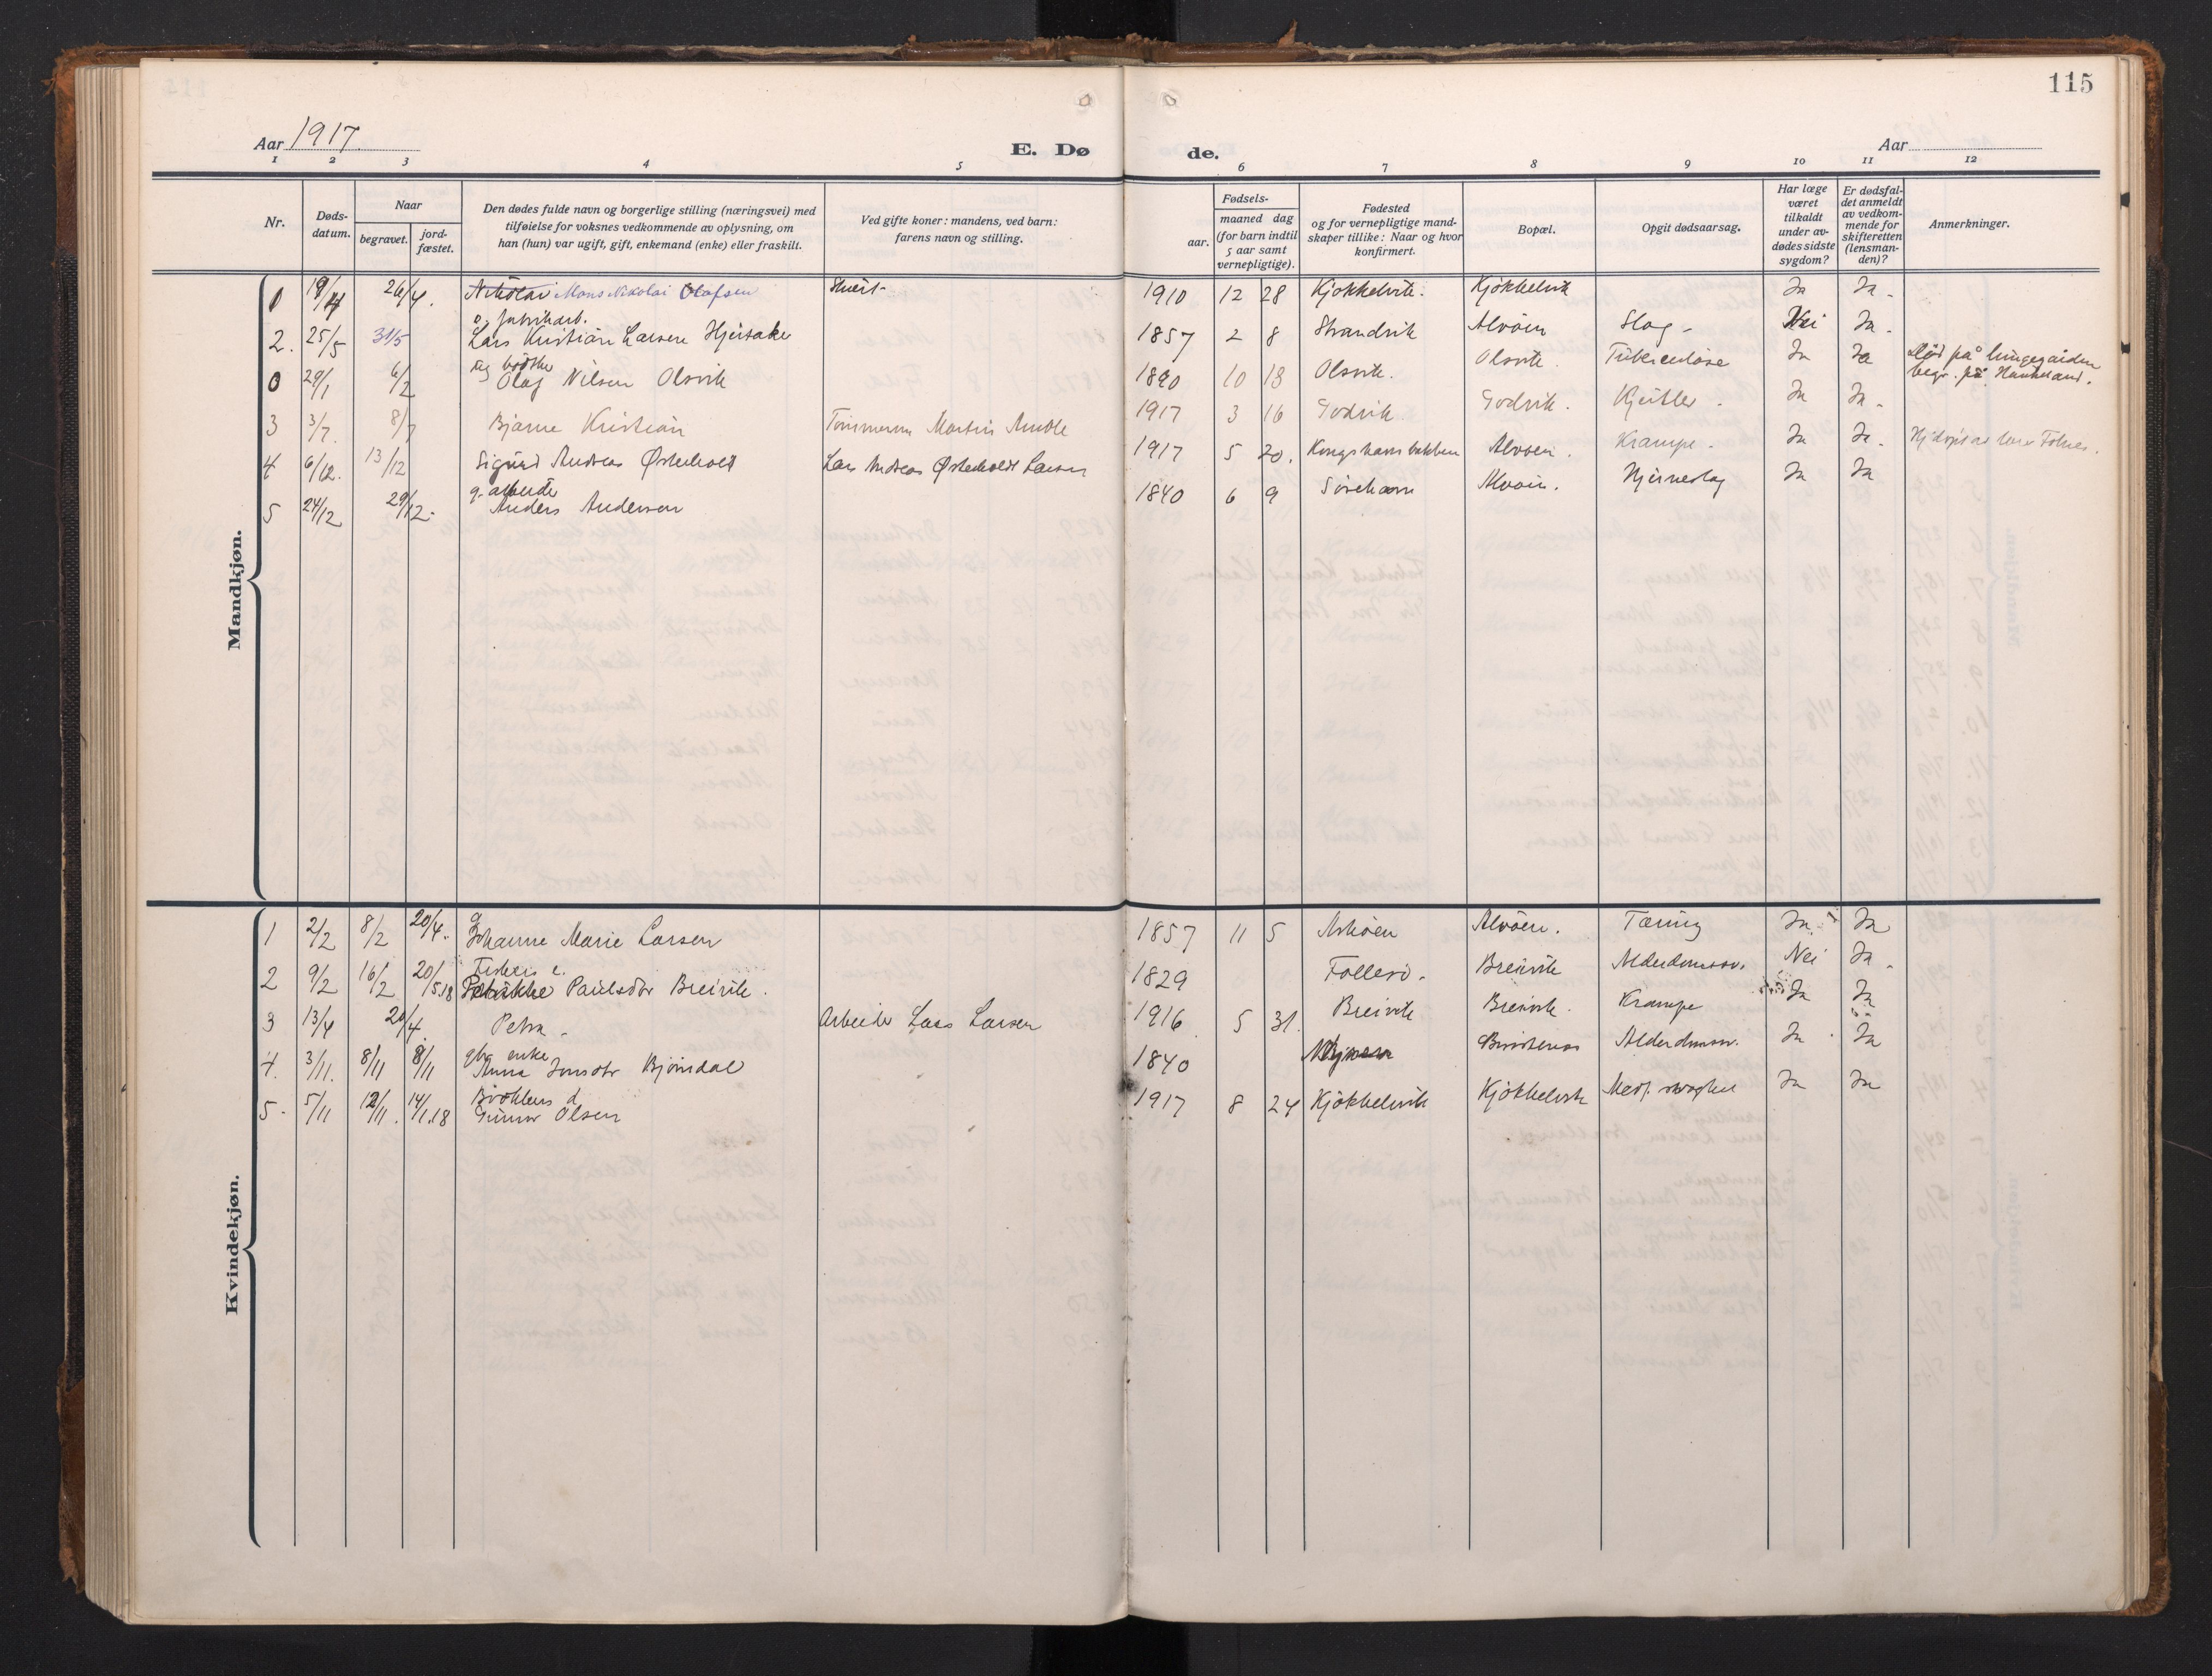 115
Aar 1917. E. Dø de. Aar
1 2 3 4 5 6 7 8 9 10 11 12
Nr. Døds-datum. Naar begravet. jord-fæstet. Den dødes fulde navn og borgerlige stilling (næringsvei) med tilføielse for voksnes vedkommende av oplysning, om han (hun) var ugift, gift, enkemand (enke) eller fraskilt. Ved gifte koner: mandens, ved barn: farens navn og stilling. Fødsels- aar. maaned dag (for barn indtil 5 aar samt vernepligtige). Fødested og for vernepligtige mand-skaper tillike: Naar og hvor konfirmert. Bopæl. Opgit dødsaarsag. Har læge været tilkaldt under av-dødes sidste sygdom? Er dødsfal-det anmeldt av vedkom-mende for skifteretten (lensman-den)? Anmerkninger.
Mandkjøn.
0 19/4 26/4. Nikolai Mons Nikolai Olafsen 1910 12 28 Kjøkkelvik. Kjøkkelvik Ja Ja.
fabrikarb.
2. 25/5 31/5 Lars Kristian Larsen 1857 2 8 Strandvik Alvøen Slag - Nei Ja.
0 29/1 6/2 Olaf Nilsen Olsvik 1890 10 18 Olsvik. Olsvik Ja Ja Død på
begr. på Haukeland.
3 3/7. 8/7 Bjarne Kristian Martin 1917 3 16 Godvik Godvik. Ja Ja.
4 6/12. 13/12 Sigurd Andreas Østerholt Lars Andreas Østerholt Larsen 1917 5 20. Alvøen. Krampe. Ja Ja.
g. arbeide
5 24/12 29/12. Anders Anderson 1840 6 9 Alvøen. Hjerneslag Ja Ja
Kvindekjøn.
g
1 2/2 8/2 20/4. Johanne Marie Larsen 1857 11 5 Askøen Alvøen. Tæring Ja. Ja
Fiskers e.
2 9/2 16/2 20/5.18 Paulsdtr Breivik. 1829 Follesø. Breivik Nei Ja.
3 13/4 20/4. Petra - Arbeider Lars Larsen 1916 5 31. Breivik Breivik. Krampe Ja Ja
enke
4. 3/11. 8/11 8/11 Anna Bjørndal 1840 Ja Ja
d.
5. 5/11 12/11. 14/1.18 Gunvor Olsen 1917 8 24 Kjøkkelvik Kjøkkelvik Ja Ja